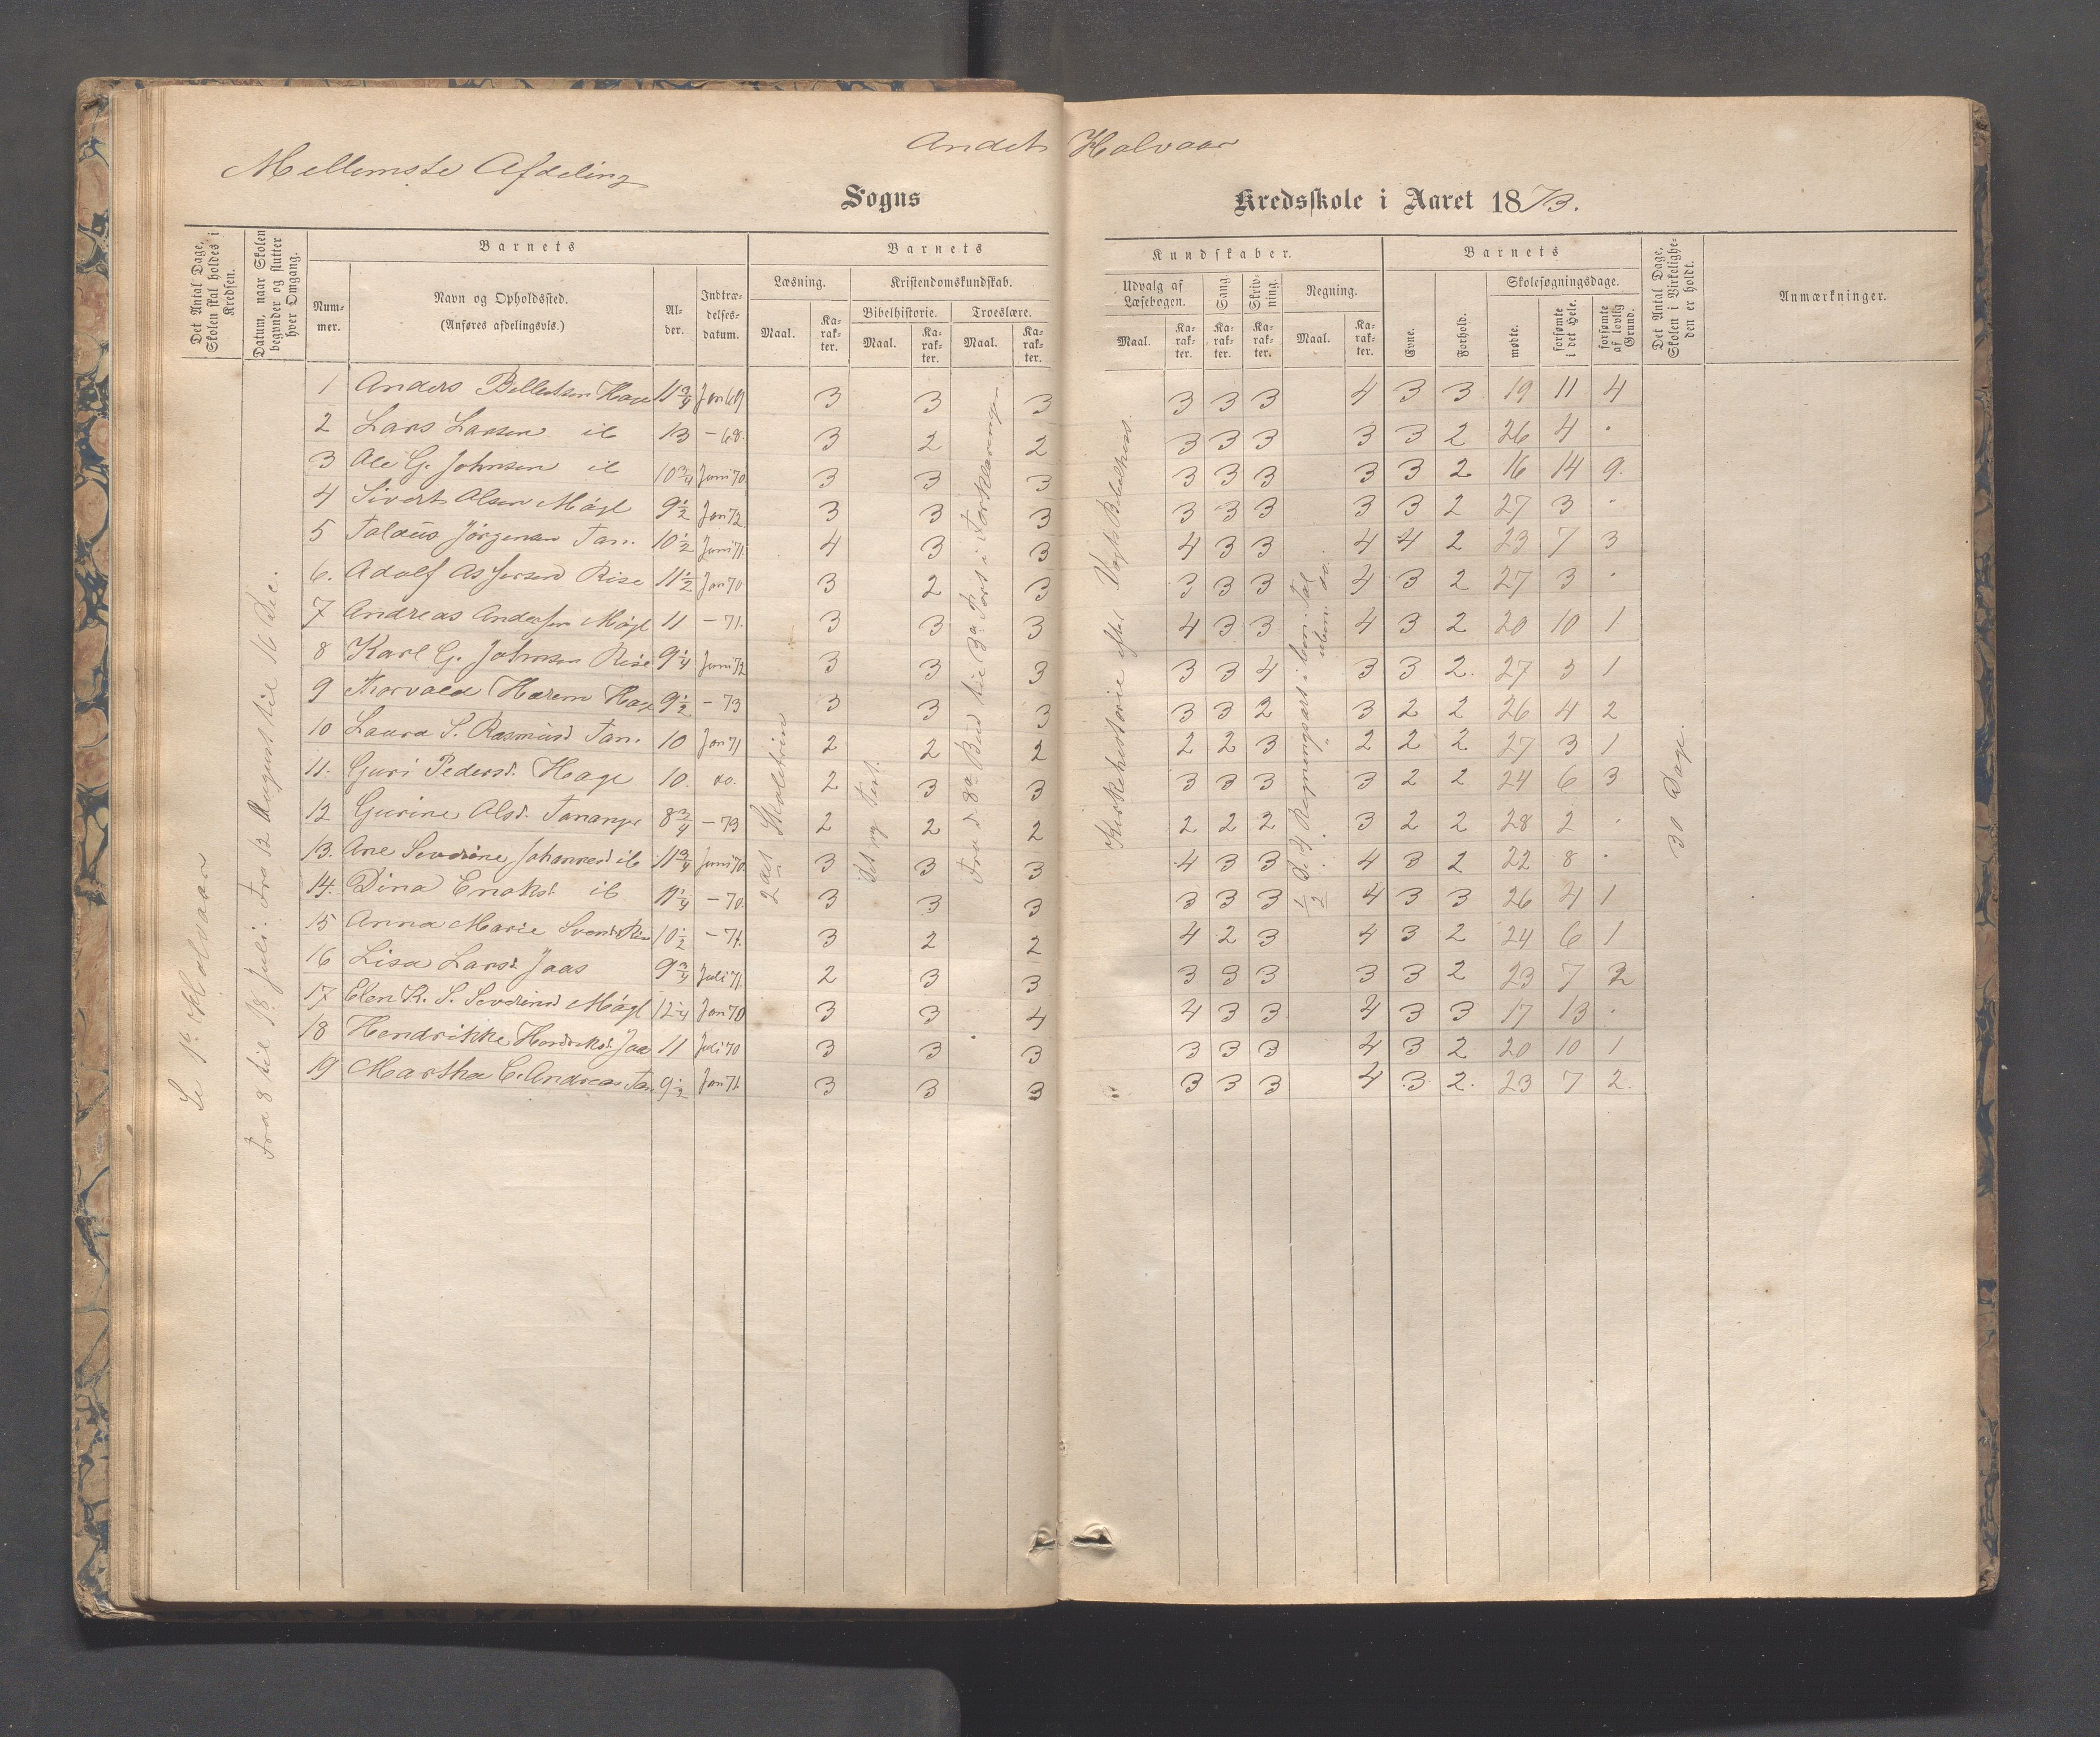 Andet Halvaar
Mellemste Afdeling
Sogns Kredsskole i Aaret 1873.
Det Antal Dage, Skolen skal holdes i Kredsen.
Datum, naar Skolen begynder og slutter hver Omgang.
Barnets
Nummer.
Navn og Opholdssted.
(Anføres afdelingsvis.)
Alder.
Indtrædelsesdatum.
Barnets
Læsning.
Maal.
Karakter.
Kristendomskundskab.
Bibelhistorie.
Maal.
Karakter.
Troeslære.
Maal.
Karakter.
Kundskaber.
Udvalg af Læsebogen.
Maal.
Karakter.
Sang
Karakter.
Skrivning.
Karakter.
Regning.
Maal.
Karakter.
Barnets
Evne.
Forhold.
Skolesøgningsdage.
mødte.
forsømte i det Hele.
forsømte af lovlig Grund.
Det Antal Dage, Skolen i Virkeligheden er holdt.
Anmærkninger.
Se 1ste Halvaar
Fra 8 til 18 Juli. Fra 12 August til 16 Dec.
2det Skoletrin
Fra d. 8de Bud til 3die Part i Forklaringen.
Kirkehistorie efter Vogts Bibelhist.
30 Dage.
1 Anders 11¾ Jan 69 3 3 3 3 3 3 4 3 3 19 11 4
2 Lars Larsen ib 13 – 68. 3 2 2 3 3 3 3 3 2 26 4 ·
3 Ole G. Johnsen ib 10¾ Juni 70. 3 3 3 3 3 3 3 3 2. 16 14 9.
4 Sivert Olsen Møgl 9½ Jan 72. 3 3 3 3 3 3 3 3 2 27 3 ·
5 Jörgensen Tan. 10½ Juni 71. 4 3 3 4 3 3 4 4 2 23 7 3
6. Adolf Rise 11½ Jan 70 3 2 3 3 3 3 4 3 2 27 3 ·
7 Andreas Andersen Møgl 11 – 71. 3 3 3 4 3 3 4 3 2 20 10 1
8 Karl G. Johnsen Rise 9¼ Juni 72 3 3 3 3 3 4 3 3 2. 27 3 1
9 Thorvald Harem 9½ – 73 3 3 3 3 3 2 3 2 2 26 4 2
10 Laura S. Rasmusd Tan. 10 Jan 71 2 2 2 2 2 3 2 2 2 27 3 1
11. Guri Pedersd. Hage 10. do. 2 3 3 3 3 3 3 2 2 24 6 3
12 Gurine Olsd. Tananger 8¾ – 73 2 2 2 2 2 2 3 2 2 28 2 ·
13. Ane Sevrine Johannesd ib 11¾ Juni 70. 3 3 3 4 3 3 4 3 2 22 8 ·
14. Dina Enoksd. ib 11¼ – 70. 3 3 3 3 3 3 4 3 3 26 4 1
15 Anna Marie 10½ – 71. 3 2 2 4 2 3 4 3 2 24 6 1
16 Lisa Larsd. Jaas 9¾ Juli 71. 2 3 3 3 3 3 3 3 2 23 7 2
17 Elen K. S. Sevrinsd Møgl 12¼ Jan 70 3 3 4 4 3 3 4 3 3 17 13 ·
18 Hendrikke Hendriksd. Jaa 11 Juli 70 3 3 3 3 3 3 4 3 2 20 10 1
19 Martha C. Andreas Tan. 9½ Jan 71 3 3 3 3 3 3 4 3 2. 23 7 2.